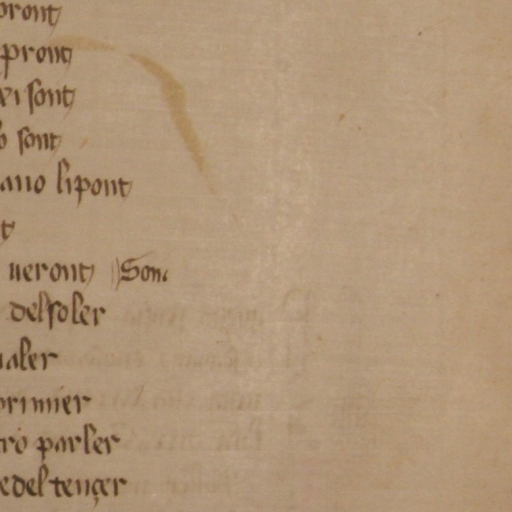 pront
pront
ei sont
o sont
ano li pont
t
ueront Son
del soler
aler
primier
tro parler
e del tençer